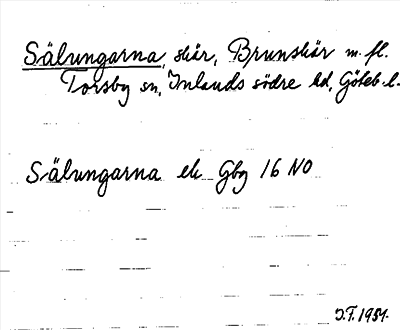 Sälungarna, skär, Brunskär m. fl.
Torsby sn, Inlands södre hd, Göteb. l.
Sälungarna ek Gbg 16 NO
J.F. 1951.